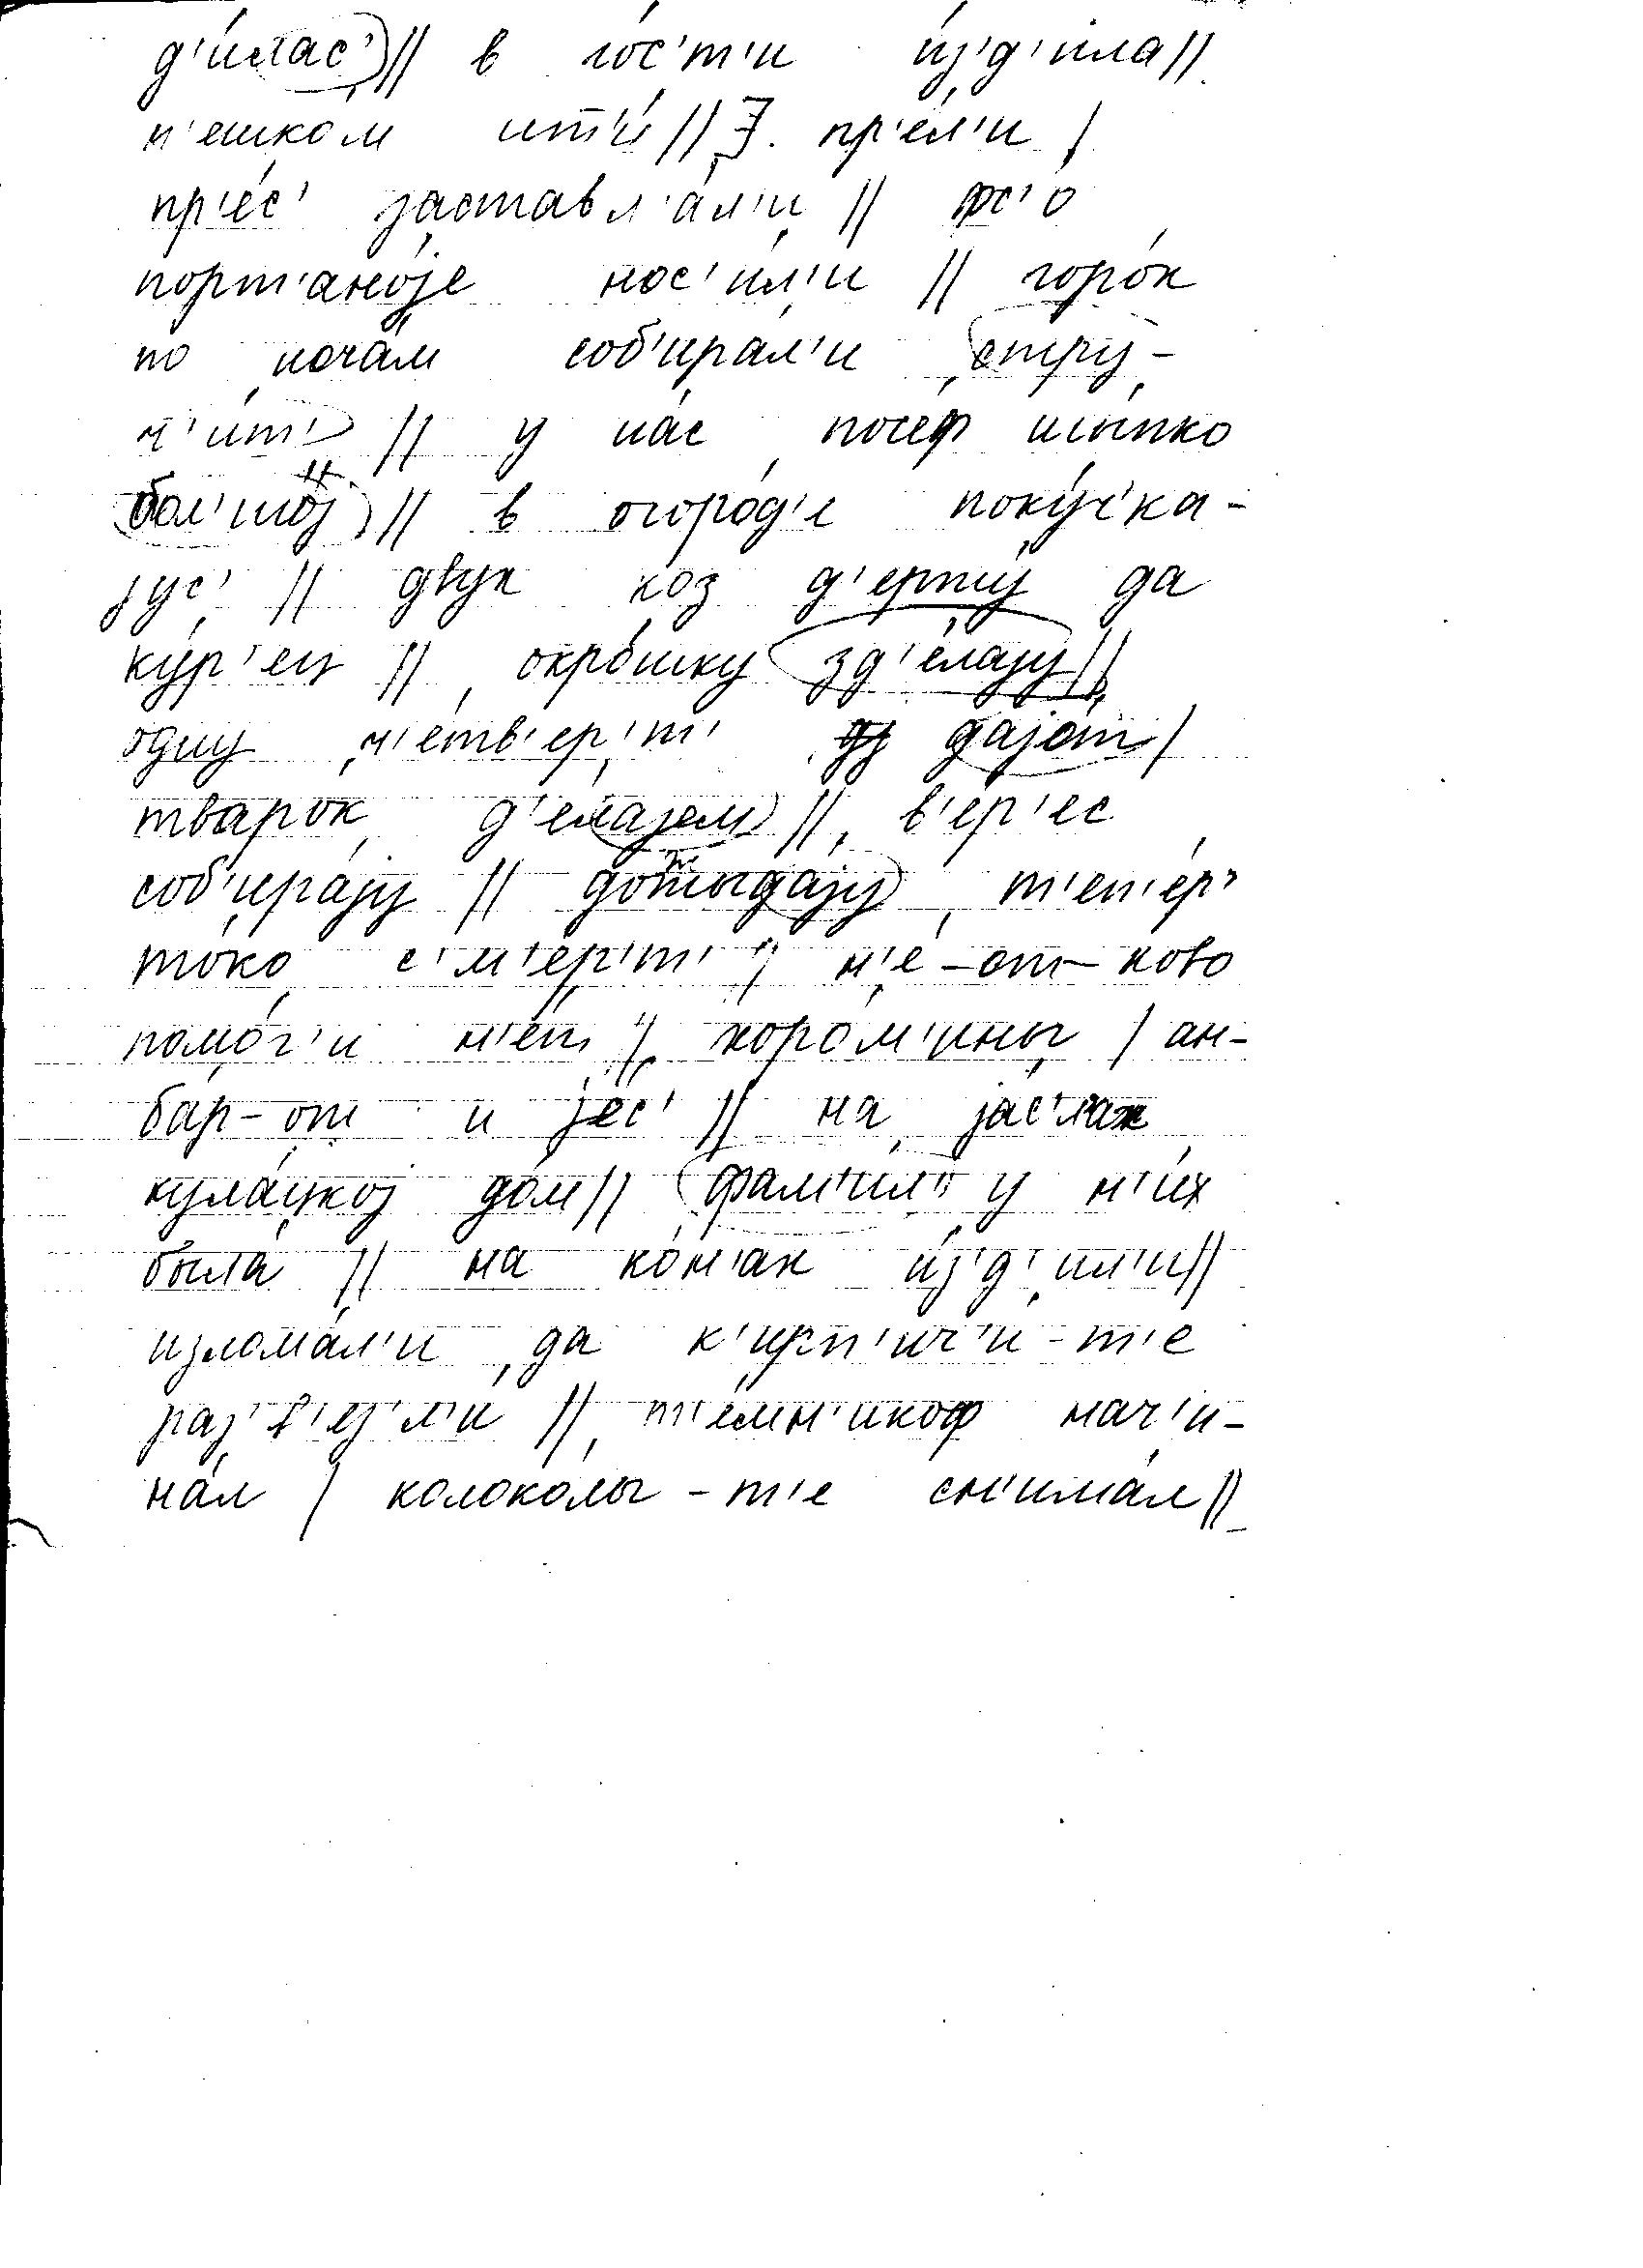 д'и́лас' // в го́с'т'и и́з'д'ила //
п'ешком ит'и́ // З. пр'е́л'и /
пр'е́с' заставл'а́л'и // фс'о́
порт'ано́jе нос'и́л'и // горо́х
по ноча́м соб'ира́л'и стру-
ч'и́т' // у на́с посе́ф шы́пко
бол'шо́j // в огоро́д'е поку́ч'ка-
jус' // двух коз д'ержу́ да
ку́р'ец // окро́шку зд'е́лаjу //
одну че́тв'ер'т' даjо́т /
тварок д'е́лаjем // в'е́р'ес
соб'ира́jу // дожыда́jу т'еп'е́р'
то́ко с'м'е́р'т' // н'е-от-ково
помо́г'и н'е́т // хоро́м'ины / ан-
ба́р-от и jес' // на jа́с'лах
кула́цкоj до́м // фам'и́л' у н'и́х
была́ // на ко́н'ах и́з'д'ил'и //
излома́л'и да к'ирп'ич'и́-т'е
раз'в'ез'л'и́ // т'е́мн'икоф нач'и-
на́л / колокола́-т'е сн'има́л //